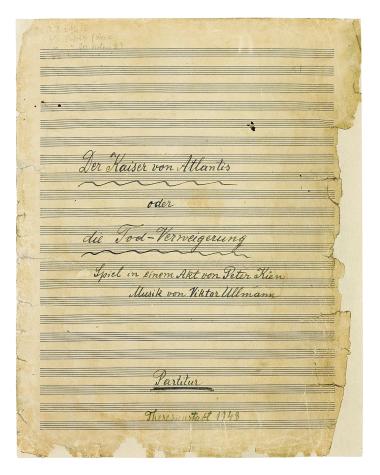 Der Kaiser von Atlantis
oder
die Tod-Verweigerung
Spiel in einem Akt von Peter Kien
Musik von Viktor Ullmann
Partitur
Theresienstadt 1943